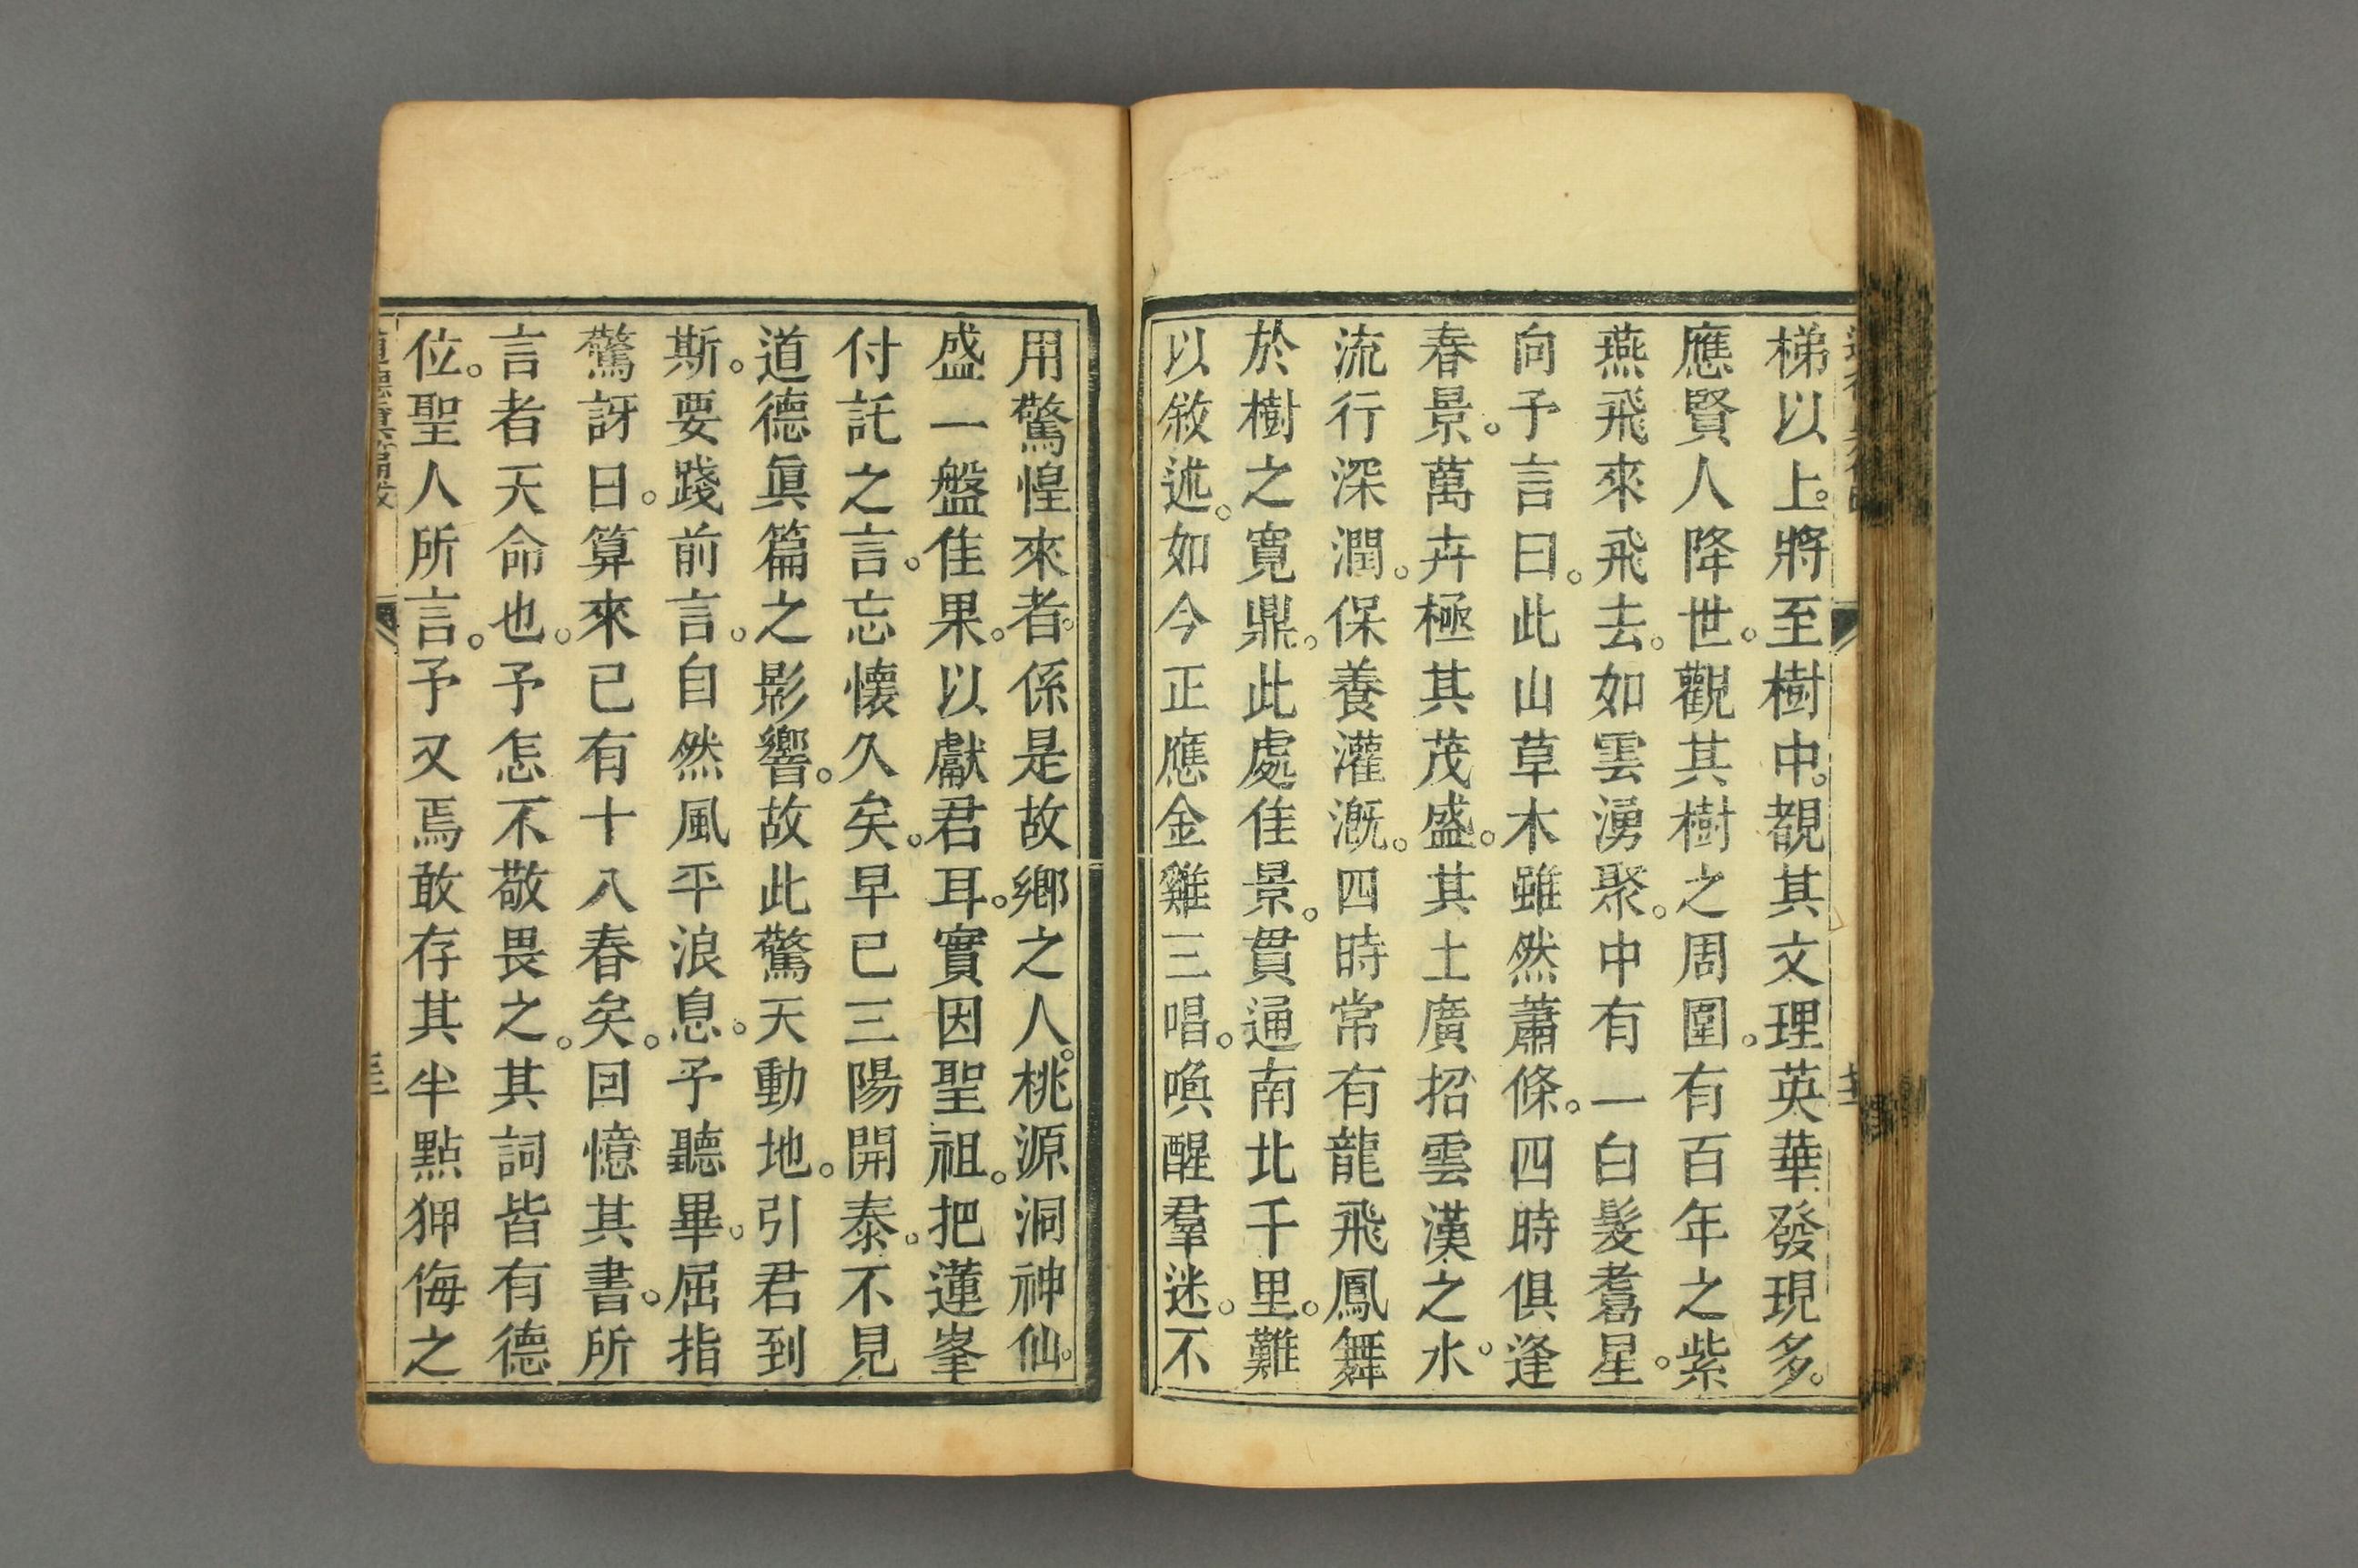 梯以上。將至樹中。覩其文理英華發現多。
應賢人降世。觀其樹之周圍。有百年之紫
燕飛來飛去。如雲湧聚。中有一白髮耄星。
向予言曰。此山草木雖然蕭條。四時俱逢
春景。萬卉極其茂盛。其土廣招雲漢之水。
流行深潤。保養灌漑。四時常有龍飛鳳舞
於樹之寬鼎。此處佳景。貫通南北千里。難
以敘述。如今正應金雞三唱。喚醒羣迷。不
用驚惶來者。係是故鄉之人。桃源洞神仙。
盛一盤佳果。以獻君耳。實因聖祖。把蓮峯
付託之言。忘懷久矣。早已三陽開泰。不見
道德眞篇之影響。故此驚天動地。引君到
斯。要踐前言。自然風平浪息。予聽畢。屈指
驚訝曰。算來已有十八春矣。回憶其書。所
言者天命也。予怎不敬畏之。其詞皆有德
位。聖人所言。予又焉敢存其半點狎侮之